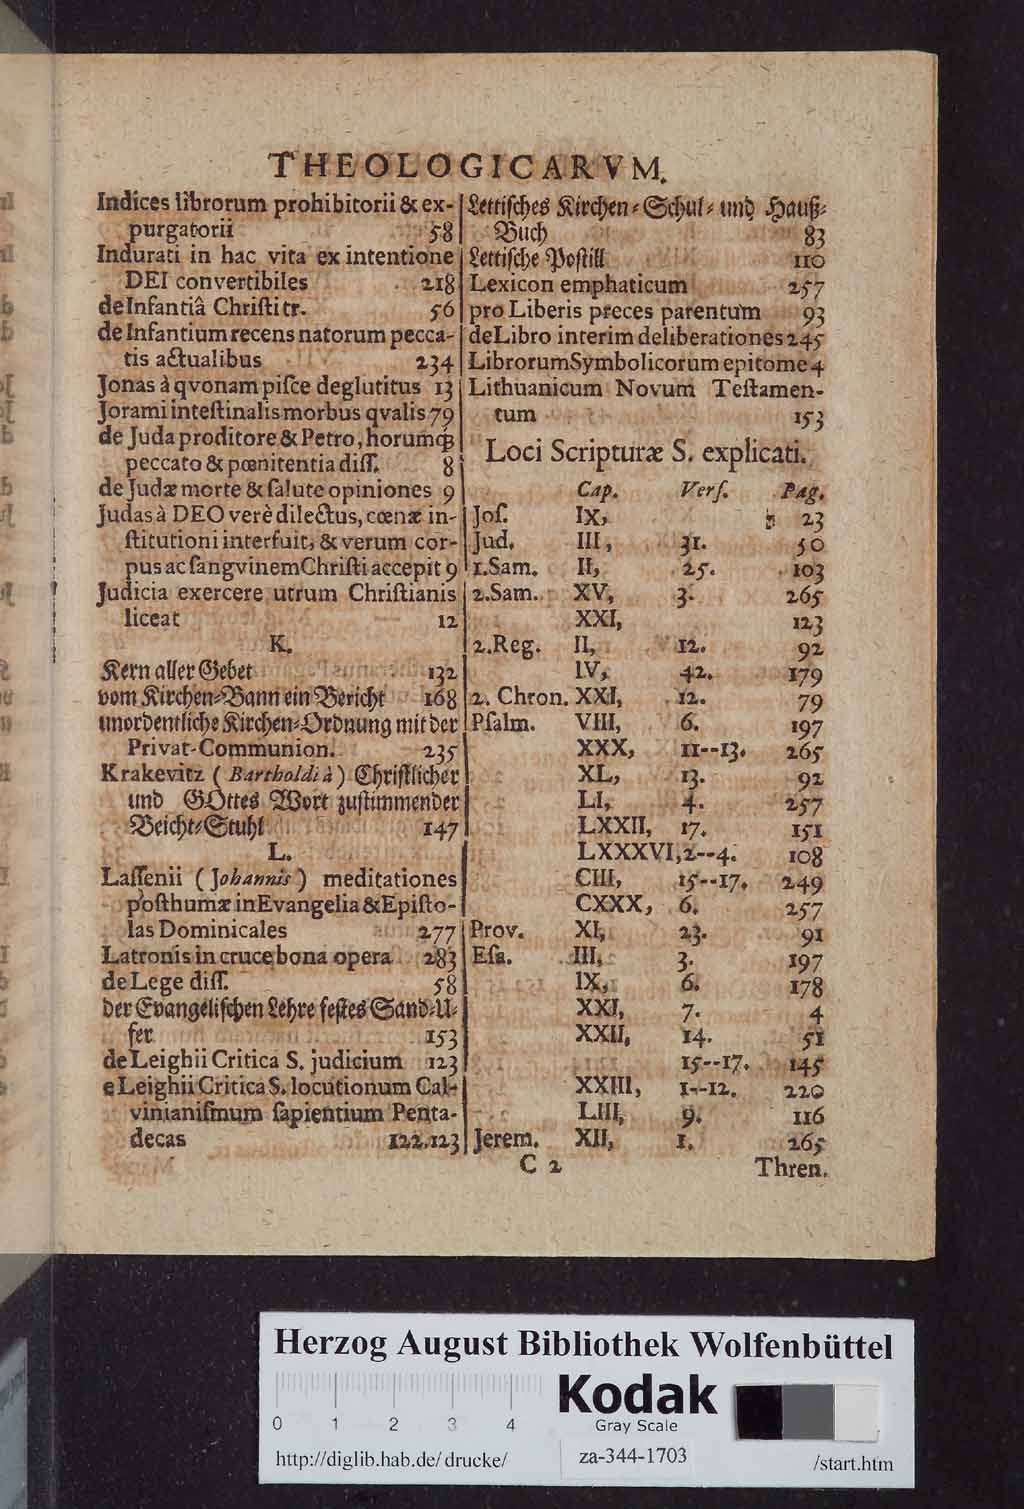 THEOLOGICARVM.
Indices librorum prohibitorii & ex-
purgatorii 58
Indurati in hac vita ex intentione
DEI convertibiles 218
de Infantiâ Chriſti tr. 56
de Infantium recens natorum pecca-
tis actualibus 234
Jonas à qvonam piſce deglutitus 13
Jorami inteſtinalis morbus qvalis 79
de Juda proditore & Petro, horumq́;
peccato & pœnitentia diſſ. 8
de Judæ morte & ſalute opiniones 9
Judas à DEO verè dilectus, cœnæ in-
ſtitutioni interfuit, & verum cor-
pus ac ſangvinem Chriſti accepit 9
Judicia exercere utrum Chriſtianis
liceat 12
K.
Kern aller Gebet 132
vom Kirchen-Bann ein Bericht 168
unordentliche Kirchen-Ordnung mit der
Privat-Communion. 235
Krakevitz (Bartholdi à) Chriſtlicher
und GOttes Wort zuſtimmender
Beicht-Stuhl 147
L.
Laſſenii (Johannis) meditationes
poſthumæ in Evangelia & Epiſto-
las Dominicales 277
Latronis in cruce bona opera 283
de Lege diſſ. 58
der Evangeliſchen Lehre feſtes Sand-U-
fer 153
de Leighii Critica S. judicium 123
e Leighii Critica S. locutionum Cal-
vinianiſmum ſapientium Penta-
decas 122.123
Lettiſches Kirchen-Schul-und Hauß-
Buch 83
Lettiſche Poſtill 110
Lexicon emphaticum 257
pro Liberis preces parentum 93
de Libro interim deliberationes 245
Librorum Symbolicorum epitome 4
Lithuanicum Novum Teſtamen-
tum 153
Loci Scripturæ S. explicati.
Cap. Verſ. Pag.
Joſ. IX, 23
Jud. III, 31. 50
1.Sam. II, 25. 103
2.Sam. XV, 3. 265
XXI, 123
2.Reg. II, 12. 92
IV, 42. 179
2. Chron. XXI, 12. 79
Pſalm. VIII, 6. 197
XXX, 11--13. 265
XL, 13. 92
LI, 4. 257
LXXII, 17. 151
LXXXVI, 2--4. 108
CIII, 15--17. 249
CXXX, 6. 257
Prov. XI, 23. 91
Eſa. III, 3. 197
IX, 6. 178
XXI, 7. 4
XXII, 14. 51
15--17. 145
XXIII, 1--12. 220
LIII, 9. 116
Jerem. XII, 1. 265
C 2 Thren.
Herzog August Bibliothek Wolfenbüttel
0 1 2 3 4
Kodak
Gray Scale
http://diglib.hab.de/drucke/ za-344-1703 /start.htm